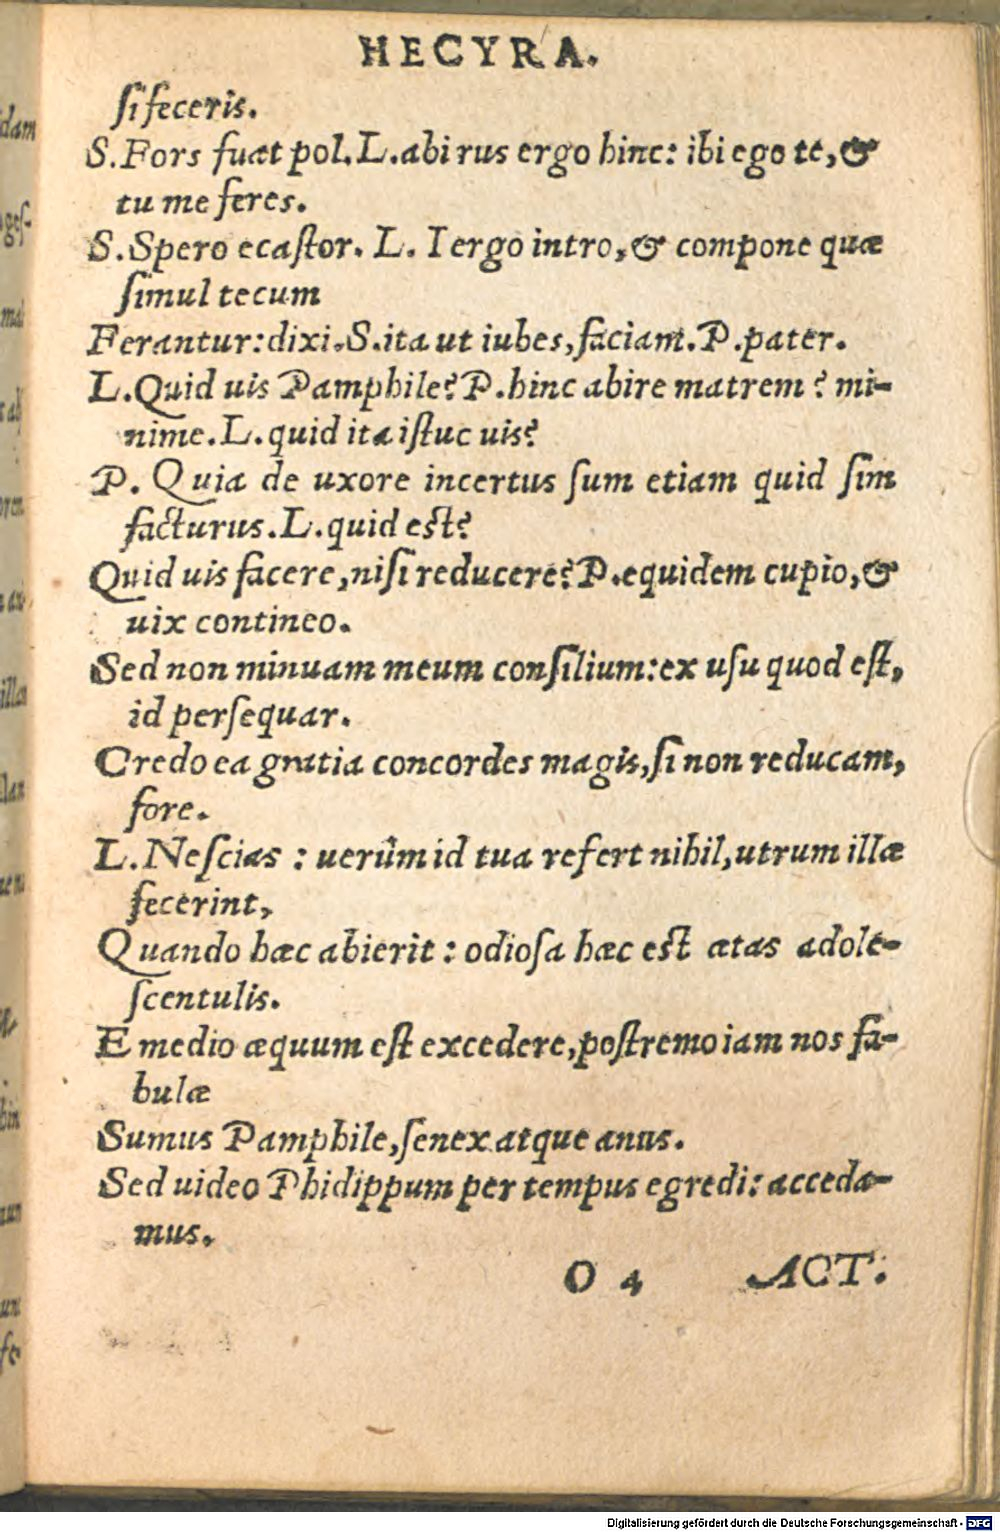 HECYRA.
ſi feceris.
S. Fors fuat pol. L. abi rus ergo hinc: ibi ego te, &
tu me feres.
S. Spero ecaſtor. L. I ergo intro, & compone quæ
ſimul tecum
Ferantur: dixi. S. ita ut iubes, faciam. P. pater.
L. Quid uis Pamphile? P. hinc abire matrem? mi-
nime. L. quid ita iſtuc uis?
P. Quia de uxore incertus ſum etiam quid ſim
facturus. L. quid eſt?
Quid uis facere, niſi reducere? P. equidem cupio, &
uix contineo.
Sed non minuam meum conſilium: ex uſu quod eſt,
id perſequar.
Credo ea gratia concordes magis, ſi non reducam,
fore.
L. Neſcias : uerûm id tua refert nihil, utrum illæ
fecerint,
Quando hæc abierit : odioſa hæc eſt ætas adole-
ſcentulis.
E medio æquum eſt excedere, poſtremo iam nos fa-
bulæ
Sumus Pamphile, ſenex atque anus.
Sed uideo Phidippum per tempus egredi: acceda-
mus.
O 4 ACT.
Digitalisierung gefördert durch die Deutsche Forschungsgemeinschaft - DFG